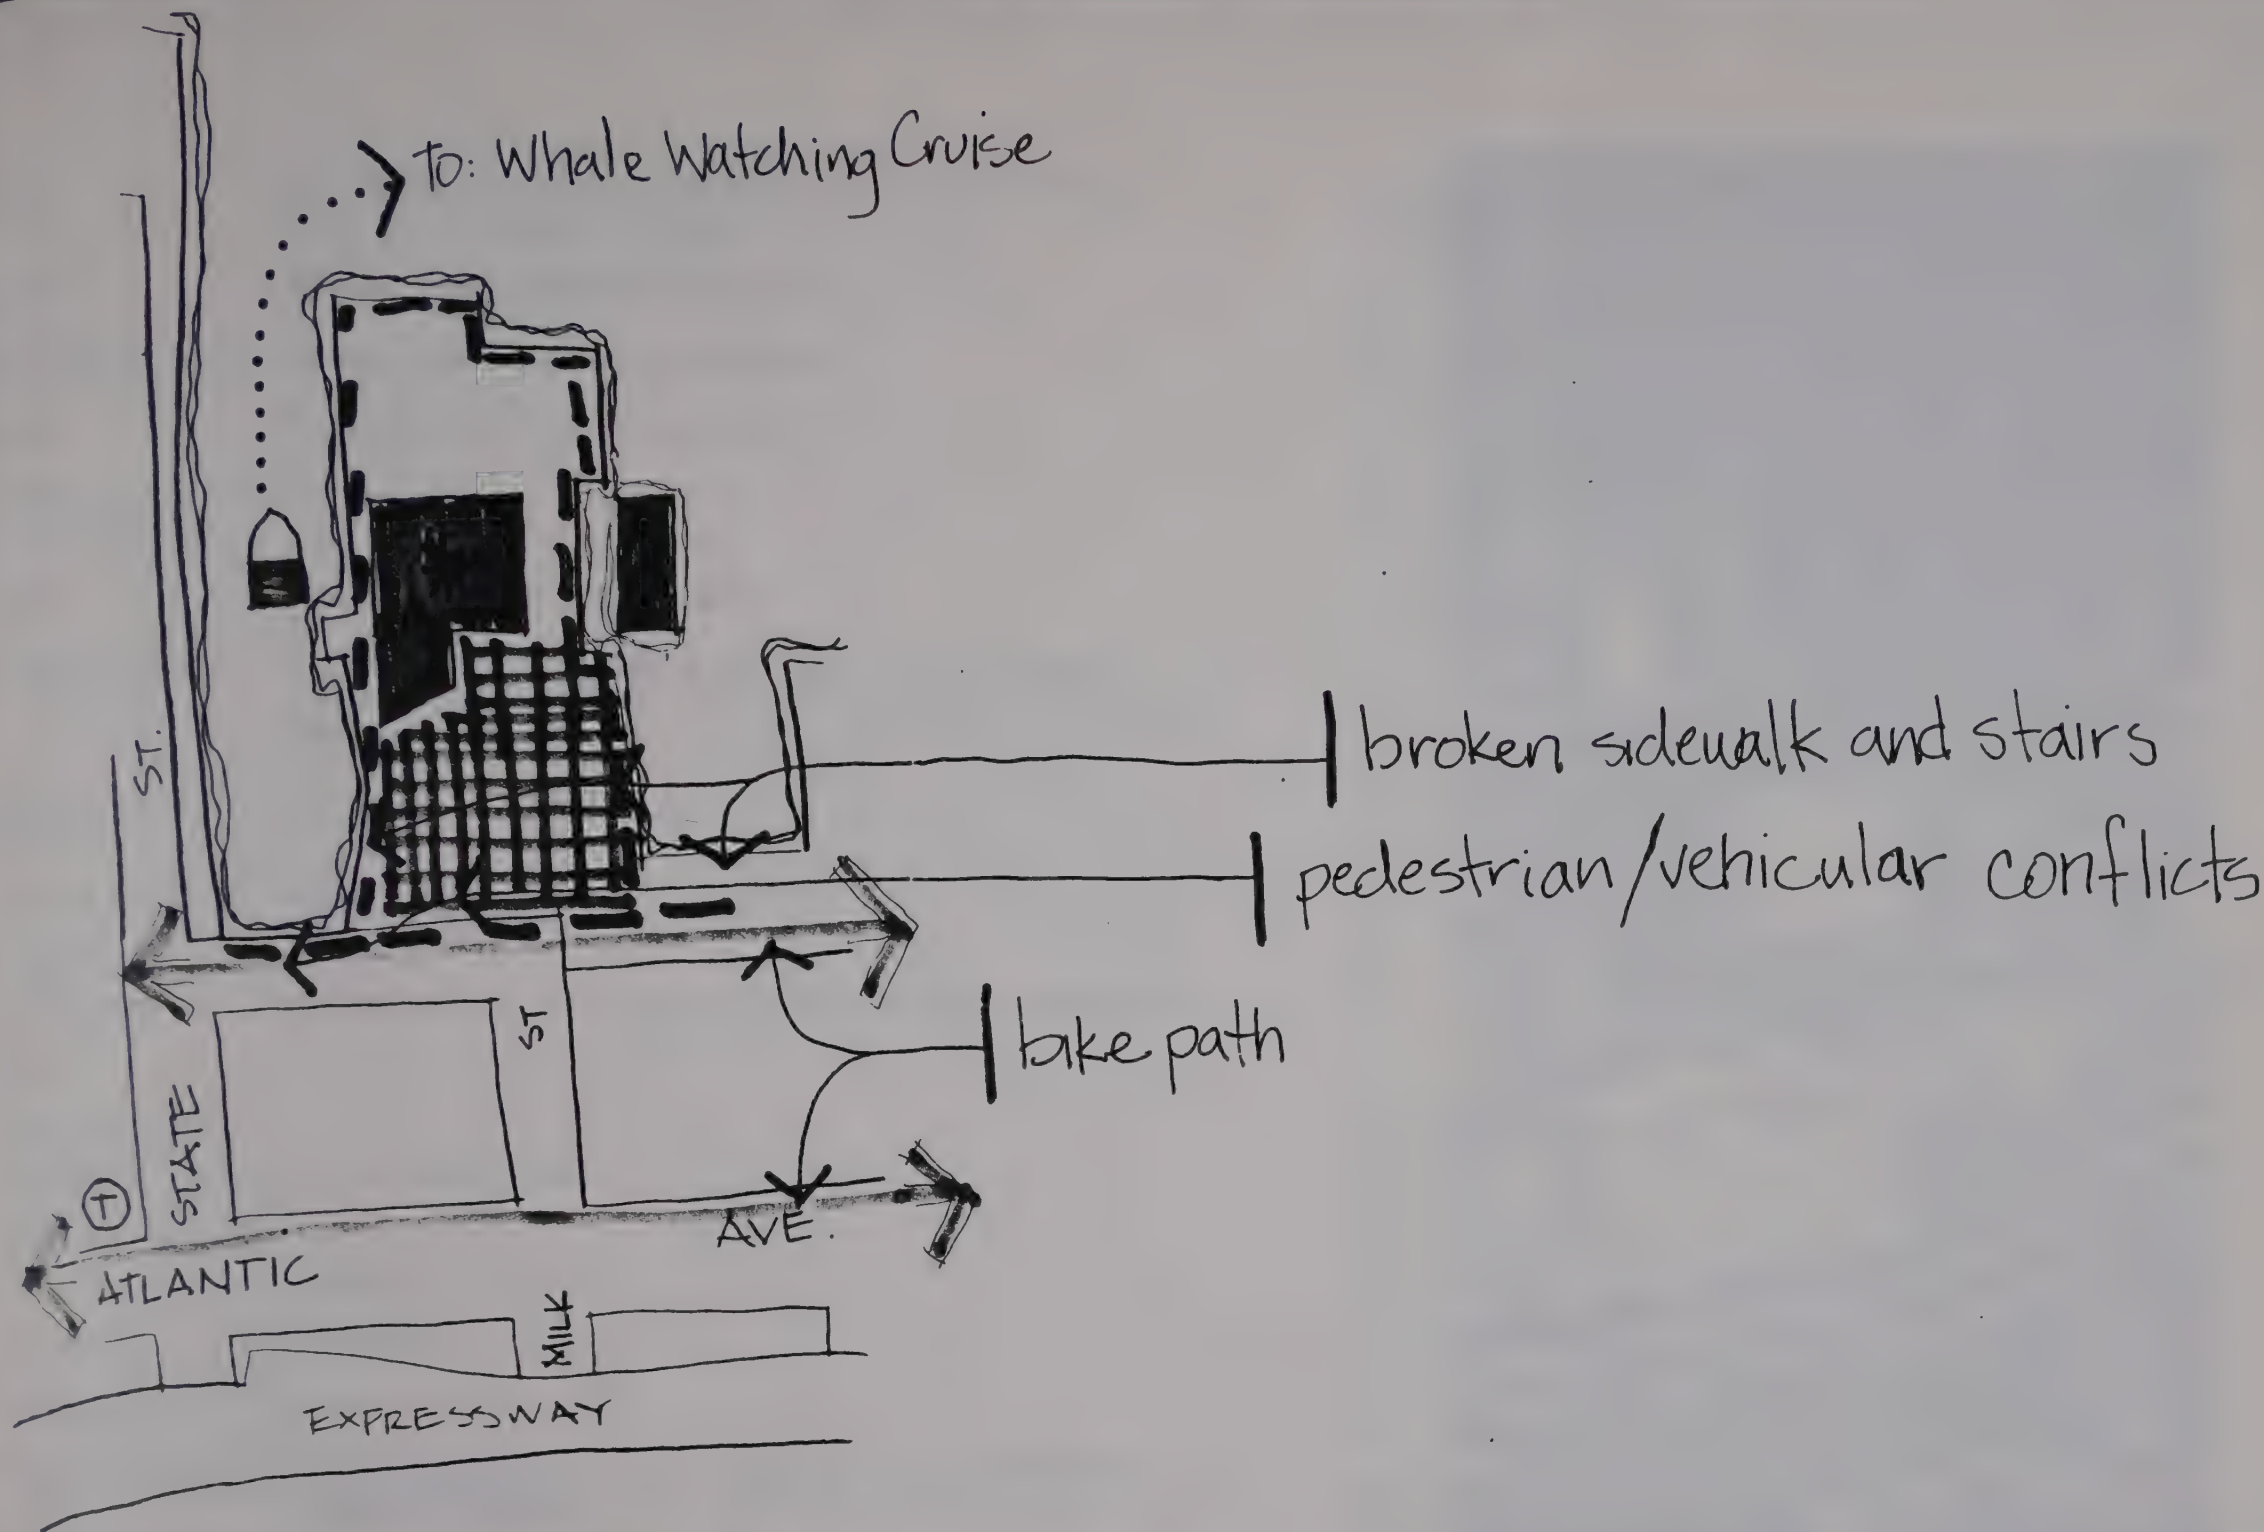 To: Whale Watching Cruise
broken sidewalk and stairs
ST.
pedestrian/vehicular conflicts
ST
bike path
STATE
T
AVE.
ATLANTIC
MILK
EXPRESSWAY